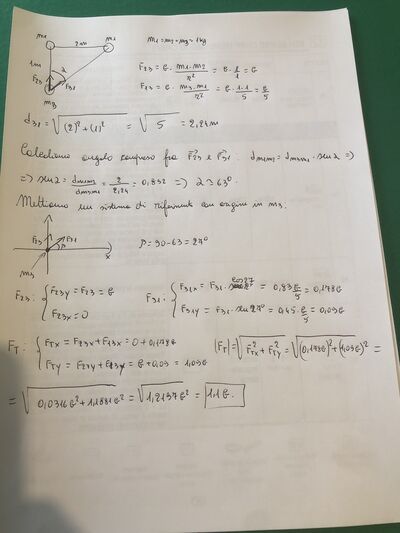 m₁ 2m m₁
m₁ = m₂ = m₃ = 1 kg
1m
α
F₂₃ F₃₁
m₃
F₂₃ = G · m₁·m₂/r² = G · 1/1 = G
F₁₃ = G · m₃·m₁/r² = G · 1·1/5 = G/5
d₃₁ = √(2)² + (1)² = √5 = 2,24 m
Calcoliamo angolo compreso fra F₂₃ e F₃₁. dm₁m₂ = dm₃m₁ · sen α =>
=> sen α = dm₁m₂/dm₃m₁ = 2/2,24 = 0,892 => α ≅ 63°
Mettiamo un sistema di riferimento con origine in m₃.
F₂₃ F₃₁
β x
m₃
β = 90 - 63 = 27°
F₂₃: { F₂₃y = F₂₃ = G
F₂₃x = 0
F₃₁: { F₃₁x = F₃₁ · cos 27 = 0,89 G/5 = 0,178 G
F₃₁y = F₃₁ · sen 27° = 0,45 · G/5 = 0,09 G
F_T: { F_Tx = F₂₃x + F₁₃x = 0 + 0,178 G
F_Ty = F₂₃y + F₁₃y = G + 0,09 = 1,09 G
|F_T| = √F²_Tx + F²_Ty = √(0,178 G)² + (1,09 G)² =
= √0,0316 G² + 1,1881 G² = √1,2197 G² = 1,1 G.